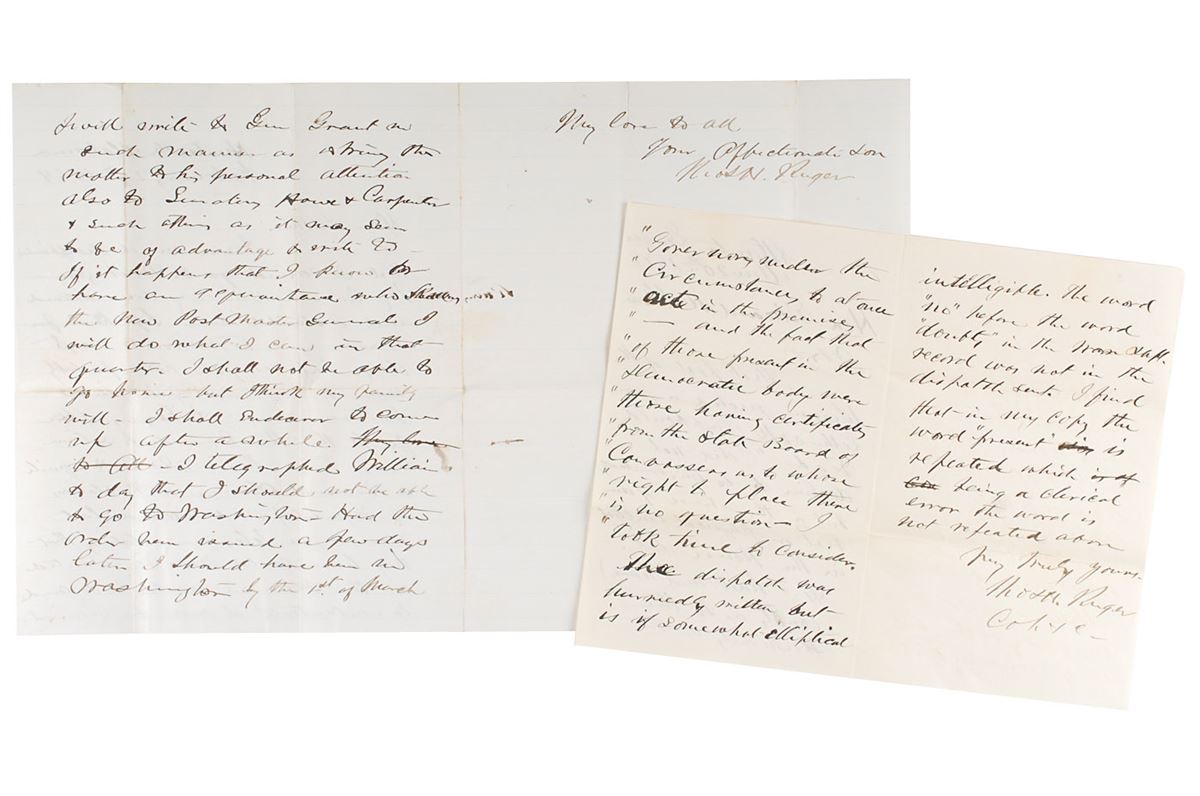 I will write to Gen Grant in
such manner as to bring the
matter to his personal attention
also to Senators Howe & Carpenter
& such others as it may seem
to be of advantage to write to
If it happens that I know or
have an acquaintance who
the New Post Master General I
will do what I can in that
quarter. I shall not be able to
go home but think my family
will - I shall Endeavor to come
up after a while. My love
to all - I telegraphed William
to day that I should not be able
to go to Washington - Had the
order been issued a few days
later I should have been in
Washington by the 1st of March
My love to all
Your Affectionate son
Thos H. Ruger
"Governors under the
"Circumstances to at once
"act in the premises
"— and the fact that
"of those present in the
"Democratic body were
"those having certificates
"from the State Board of
"Canvassers as to whose
"right to place there
"is no question — I
"took time to consider.
The dispatch was
hurriedly written but
is if somewhat elliptical
intelligible. The word
"no" before the word
"doubt" in the
record was not in the
dispatch sent. I find
that in my copy the
word "present" is
repeated which is of
being a clerical
error the word is
not repeated above
Very Truly yours
Thos H. Ruger
Col &c -